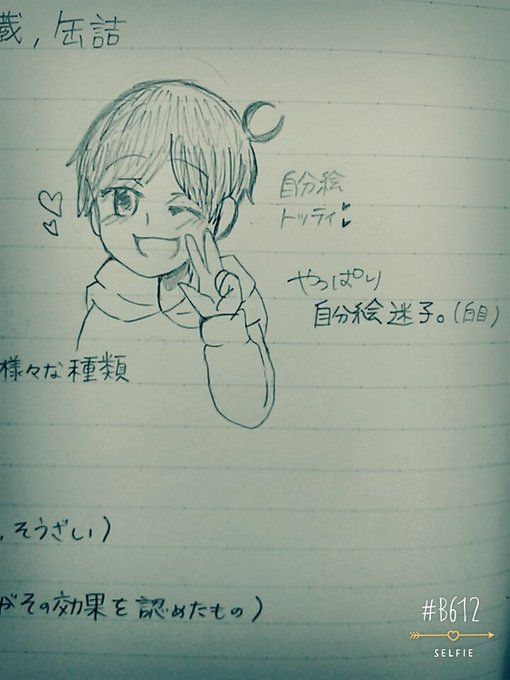 蔵,缶詰
自分絵
トッティ
やっぱり
自分絵迷子。(白目)
様々な種類
,そうざい)
がその効果を認めたもの)
#B612
SELFIE